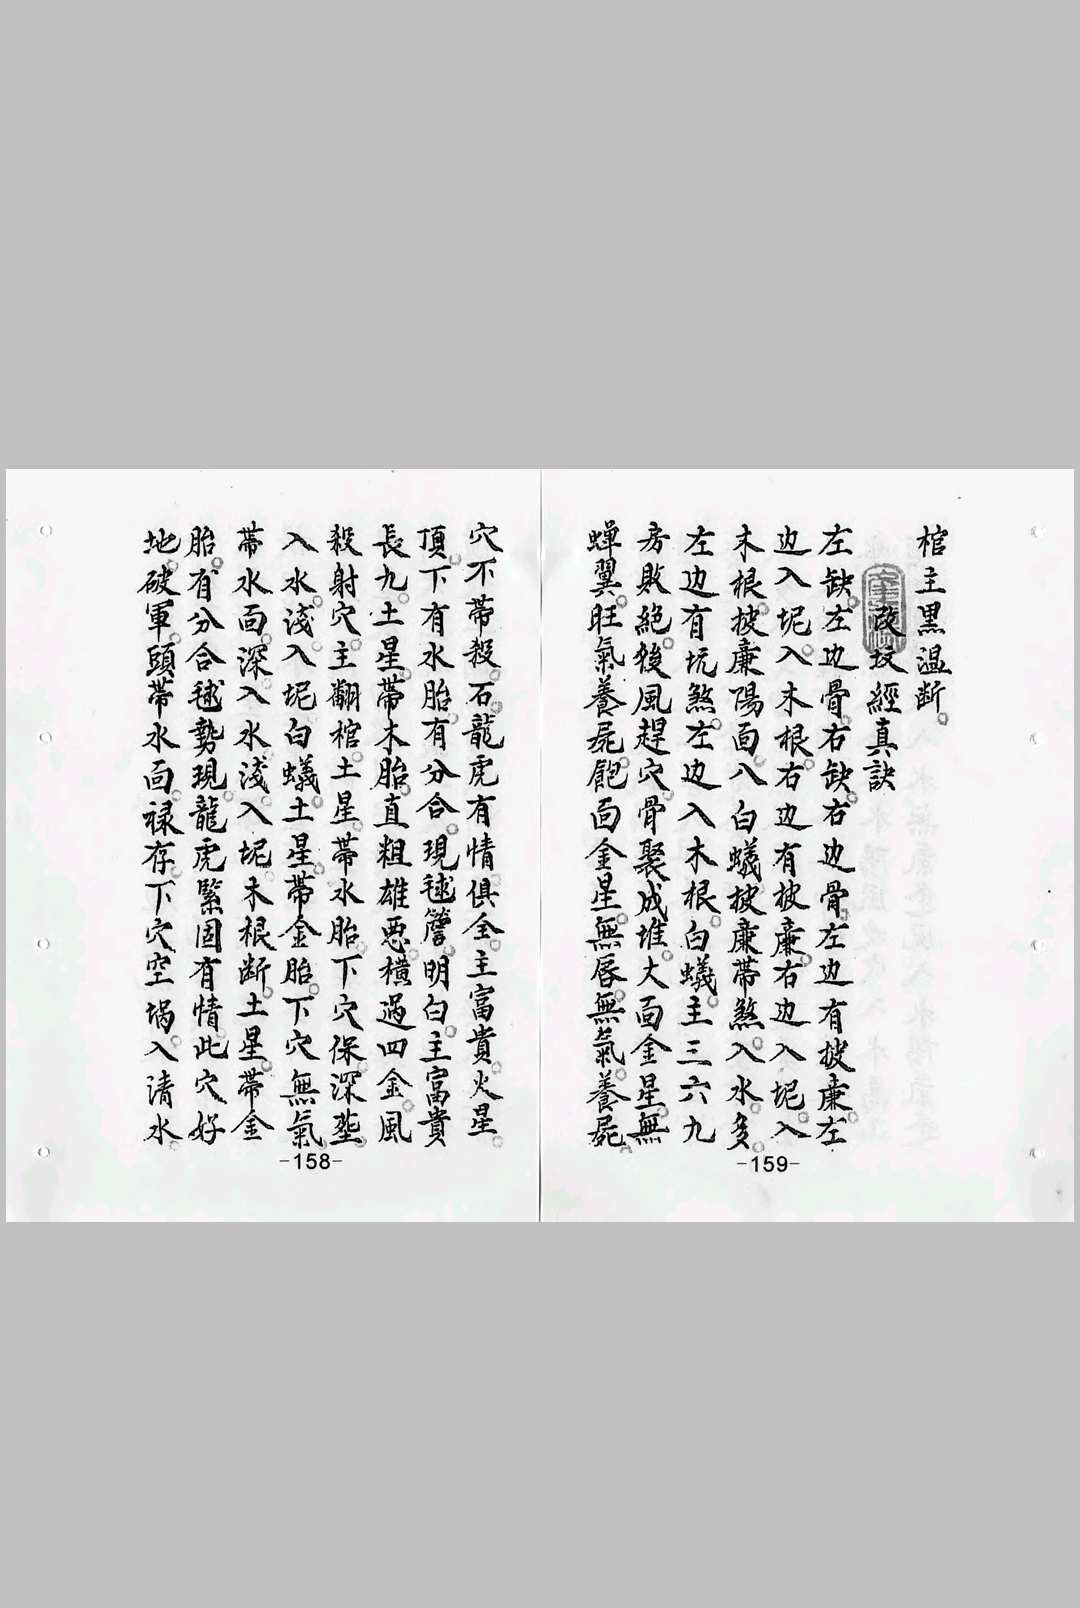 棺主黑温断。
改坟經真訣
左缺左边骨。右缺右边骨。左边有披廉。左
边入坭。入木根。右边有披廉。右边入坭。入
木根披廉陽面八白蟻披廉帯煞。入水多。
左边有坑煞。左边入木根。白蟻。主三六九
房敗絕後。風趕穴。骨聚成堆。大面金星。無
蟬翼。旺氣養屍。飽面金星。無唇無氣。養屍。
-159-
穴不帯殺。石龍虎有情俱全。主富貴。火星。
頂。下有水胎。有分合。現毬簷。明白。主富貴
長九。土星。帯木胎。直粗雄恶橫過四金。風
殺射穴。主翻棺。土星。帯水胎。下穴保深葬。
入水。淺入坭白蟻。土星。帯金胎。下穴無氣
帯水面。深入水。淺入坭木根断。土星。帯金
胎。有分合毬勢現。龍虎緊固有情。此穴好
地。破軍。頭帯水面禄存下穴空塌。入清水。
-158-